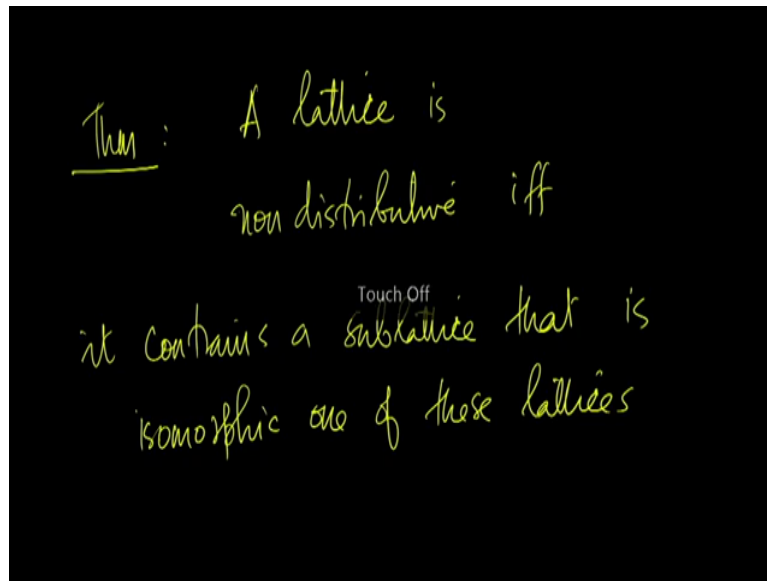 Thm : A lattice is
non distributive iff
Touch Off
it contains a sublattice that is
isomorphic one of these lattices